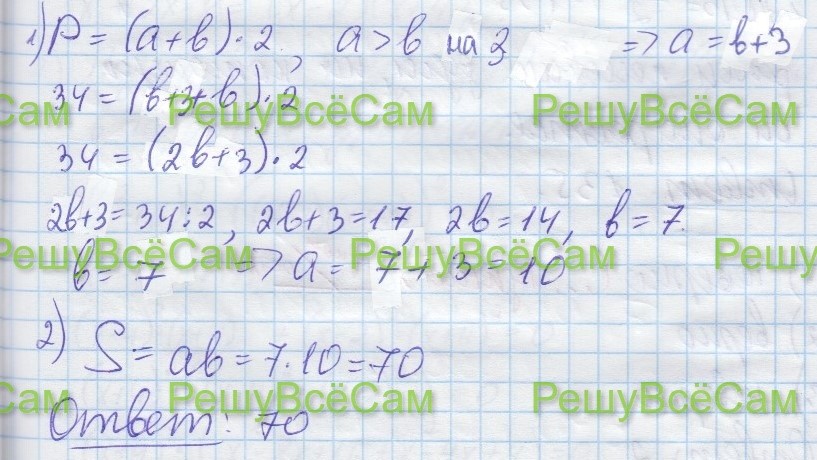 1) P = (a+b)·2, a > b на 3 => a = b+3
34 = (b+3+b)·2
Сам РешуВсёСам РешуВсёСам
34 = (2b+3)·2
2b+3 = 34:2, 2b+3=17, 2b=14, b=7.
РешуВсёСам РешуВсёСам Решу
b = 7 => a = 7 + 3 = 10
2) S = ab = 7·10 = 70
Сам РешуВсёСам РешуВсёСам
Ответ: 70